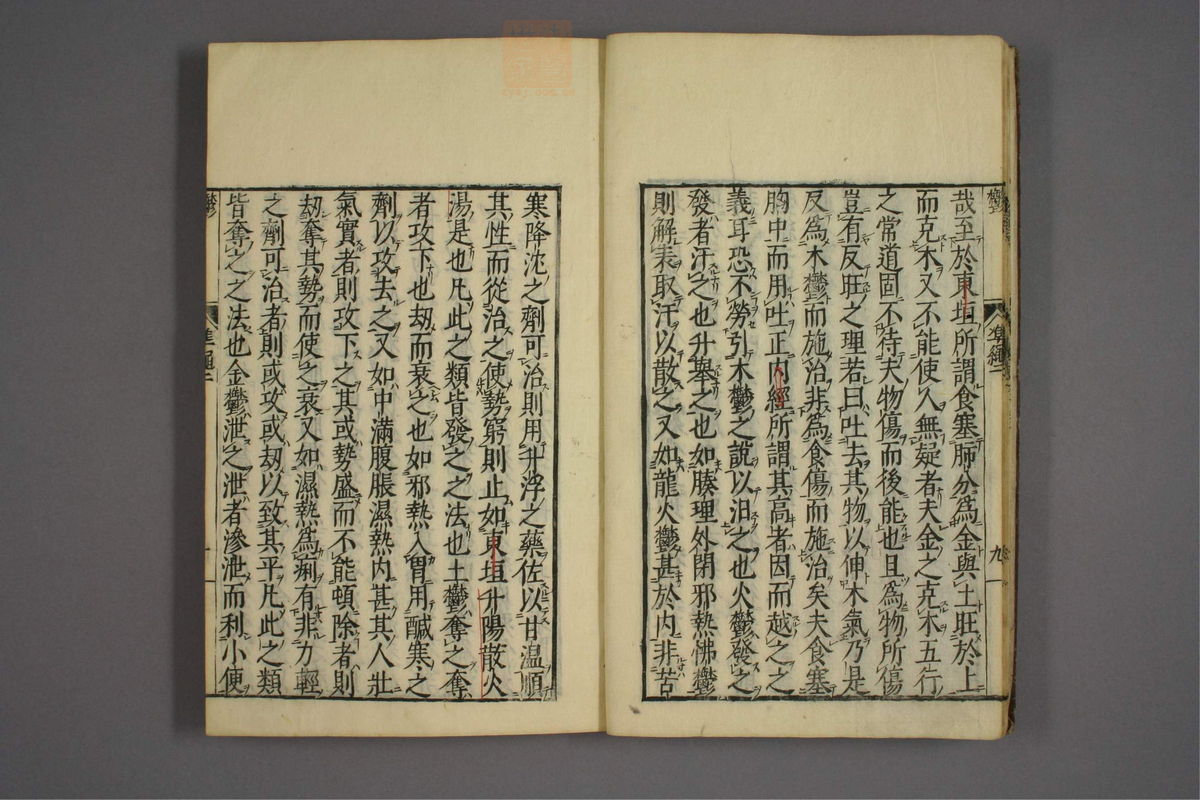 哉至於東垣所謂食塞肺分爲金與土旺於上
而克木又不能使人無疑者夫金之克木五行
之常道固不待夫物傷而後能也且爲物所傷
豈有反旺之理若曰吐去其物以伸木氣乃是
反爲木鬱而施治非爲食傷而施治矣夫食塞
胸中而用吐正内經所謂其高者因而越之之
義耳恐不勞引木鬱之說以汨之也火鬱發之
發者汗之也升舉之也如腠理外閉邪熱怫鬱
則解表取汗以散之又如龍火鬱甚於内非苦
寒降沈之劑可治則用升浮之藥佐以甘溫順
其性而從治之使勢窮則止如東垣升陽散火
湯是也凡此之類皆發之之法也土鬱奪之奪
者攻下也劫而衰之也如邪熱入胃用鹹寒之
劑以攻去之又如中滿腹脹濕熱内甚其人壯
氣實者則攻下之其或勢盛而不能頓除者則
劫奪其勢而使之衰又如濕熱爲痢有非力輕
之劑可治者則或攻或劫以致其平凡此之類
皆奪之之法也金鬱泄之泄者滲泄而利小便
鬱
準繩二
九